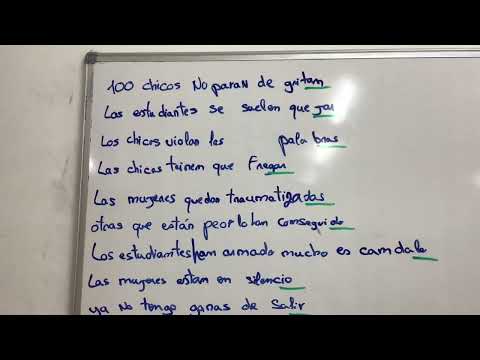 100 chicos No paran de gritam
Las estudiantes se suelen que jar
Los chicos violan las palabras
Las chicas tninem que Fregar
Las mugeres quedan traumatizadas
otras que están peor lo han conseguido
Los estudiantes han armado mucho es camdalo
Las mugeres estam en silencio
ya No tengo ganas de Salir